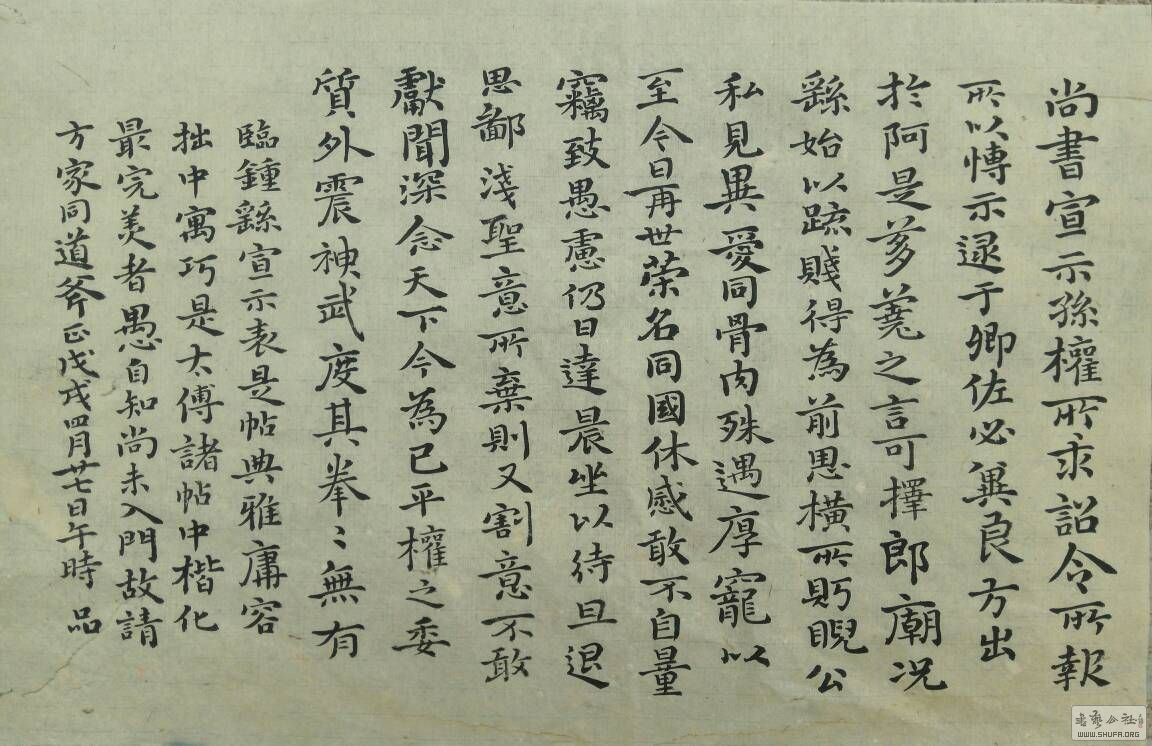 尚書宣示孫權所求詔令所報
所以慱示逯于卿佐必兾良方出
於阿是芻蕘之言可擇郎廟况
繇始以疏賤得為前恩横所盻睨公
私見異愛同骨肉殊遇厚寵以
至今日再世荣名同國休感敢不自量
竊致愚慮仍日達晨坐以待旦退
思鄙淺聖意所棄則又割意不敢
獻聞深念天下今為已平權之委
質外震神武度其拳〻無有
臨鍾繇宣示表是帖典雅庸容
拙中寓巧是太傅諸帖中楷化
最完美者愚自知尚未入門故請
方家同道斧正戊戌四月廿七日午時 品
WWW.SHUFA.ORG